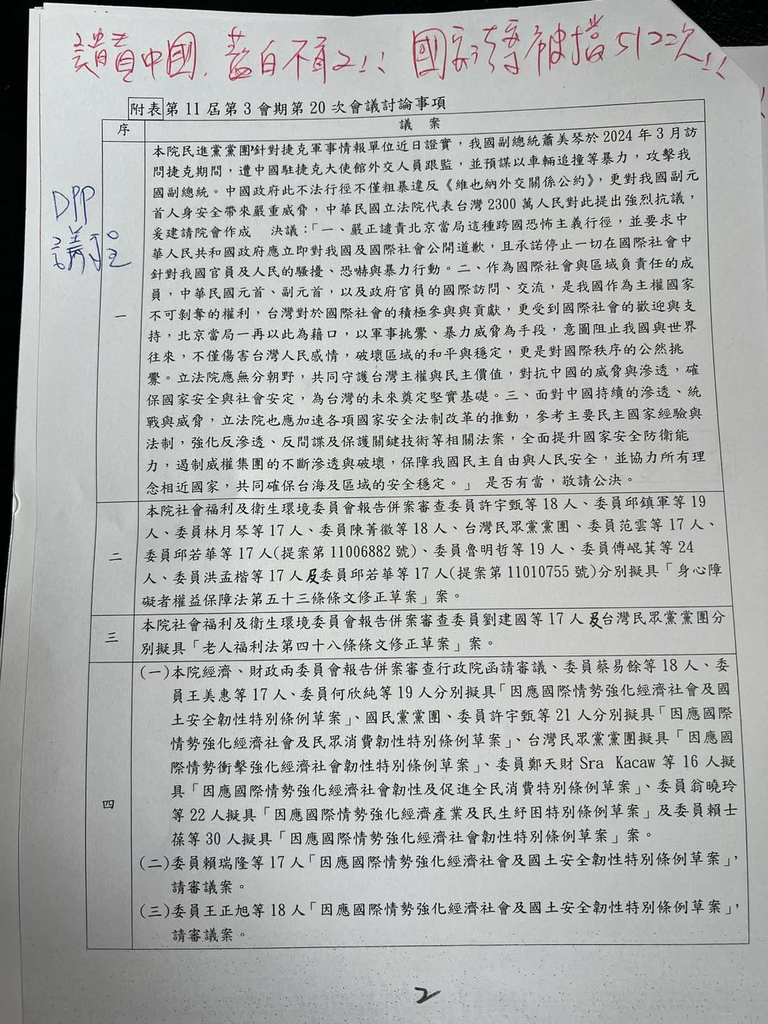 譴責中國.藍白不 !! 國 被擋 次!!
附表 第11屆第3會期第20次會議討論事項
序 議案
DPP
議程
一
本院民進黨黨團，針對捷克軍事情報單位近日證實，我國副總統蕭美琴於2024年3月訪
問捷克期間，遭中國駐捷克大使館外交人員跟監，並預謀以車輛追撞等暴力，攻擊我
國副總統。中國政府此不法行徑不僅粗暴違反《維也納外交關係公約》，更對我國副元
首人身安全帶來嚴重威脅，中華民國立法院代表台灣2300萬人民對此提出強烈抗議，
爰建請院會作成 決議：「一、嚴正譴責北京當局這種跨國恐怖主義行徑，並要求中
華人民共和國政府應立即對我國及國際社會公開道歉，且承諾停止一切在國際社會中
針對我國官員及人民的騷擾、恐嚇與暴力行動。二、作為國際社會與區域負責任的成
員，中華民國元首、副元首，以及政府官員的國際訪問、交流，是我國作為主權國家
不可剝奪的權利，台灣對於國際社會的積極參與與貢獻，更受到國際社會的歡迎與支
持，北京當局一再以此為藉口，以軍事挑釁、暴力威脅為手段，意圖阻止我國與世界
往來，不僅傷害台灣人民感情，破壞區域的和平與穩定，更是對國際秩序的公然挑
釁。立法院應無分朝野，共同守護台灣主權與民主價值，對抗中國的威脅與滲透，確
保國家安全與社會安定，為台灣的未來奠定堅實基礎。三、面對中國持續的滲透、統
戰與威脅，立法院也應加速各項國家安全法制改革的推動，參考主要民主國家經驗與
法制，強化反滲透、反間諜及保護關鍵技術等相關法案，全面提升國家安全防衛能
力，遏制威權集團的不斷滲透與破壞，保障我國民主自由與人民安全，並協力所有理
念相近國家，共同確保台海及區域的安全穩定。」 是否有當，敬請公決。
二
本院社會福利及衛生環境委員會報告併案審查委員許宇甄等18人、委員邱鎮軍等19
人、委員林月琴等17人、委員陳菁徽等18人、台灣民眾黨黨團、委員范雲等17人、
委員邱若華等17人(提案第11006882號)、委員魯明哲等19人、委員傅崐萁等24
人、委員洪孟楷等17人及委員邱若華等17人(提案第11010755號)分別擬具「身心障
礙者權益保障法第五十三條條文修正草案」案。
三
本院社會福利及衛生環境委員會報告併案審查委員劉建國等17人及台灣民眾黨黨團分
別擬具「老人福利法第四十八條條文修正草案」案。
四
(一)本院經濟、財政兩委員會報告併案審查行政院函請審議、委員蔡易餘等18人、委
員王美惠等17人、委員何欣純等19人分別擬具「因應國際情勢強化經濟社會及國
土安全韌性特別條例草案」、國民黨黨團、委員許宇甄等21人分別擬具「因應國際
情勢強化經濟社會及民眾消費韌性特別條例草案」、台灣民眾黨黨團擬具「因應國
際情勢衝擊強化經濟社會韌性特別條例草案」、委員鄭天財Sra Kacaw等16人擬
具「因應國際情勢強化經濟社會韌性及促進全民消費特別條例草案」、委員翁曉玲
等22人擬具「因應國際情勢強化經濟產業及民生紓困特別條例草案」及委員賴士
葆等30人擬具「因應國際情勢強化經濟社會韌性特別條例草案」案。
(二)委員賴瑞隆等17人「因應國際情勢強化經濟社會及國土安全韌性特別條例草案」，
請審議案。
(三)委員王正旭等18人「因應國際情勢強化經濟社會及國土安全韌性特別條例草案」，
請審議案。
2